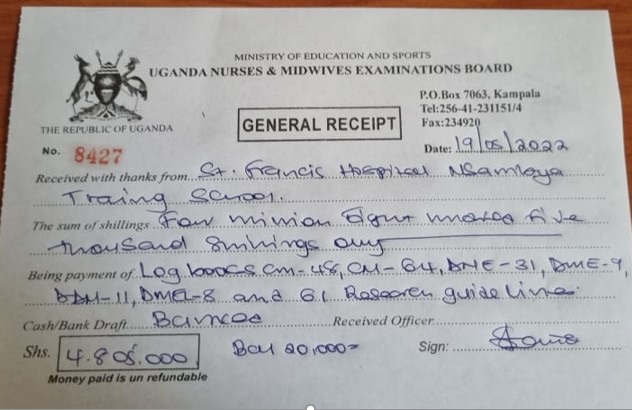 MINISTRY OF EDUCATION AND SPORTS
UGANDA NURSES & MIDWIVES EXAMINATIONS BOARD
P.O.Box 7063, Kampala
Tel:256-41-231151/4
Fax:234920
THE REPUBLIC OF UGANDA
GENERAL RECEIPT
No. 8427
Date: 19/05/2022
Received with thanks from St. Francis Hospital Nsambya
Traing School.
The sum of shillings Four million Eight hundred five
thousand Shillings only
Being payment of Log books CM-48, CM-64, DNE-31, DME-9,
DDM-11, DMEL-8 and 61 Research guideline
Cash/Bank Draft Banked Received Officer
Shs. 4.805.000 20,000= Sign:
Money paid is un refundable